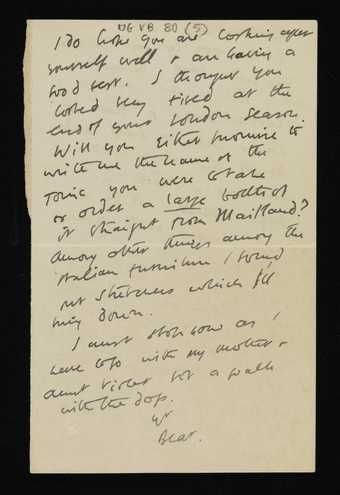 DG VB 80 (5)
I do hope you are looking after
yourself well & are having a
good rest. I thought you
looked very tired at the
end of your London Season.
Will you either promise to
write me the name of the
Tonic you were to take
or order a large bottle of
it straight from Maitland?
Among other things among the
Italian furniture I found
put stretchers which fell
down.
I must stop now as I
have to go with my mother &
aunt Violet for a walk
with the dogs.
yr
Beat.